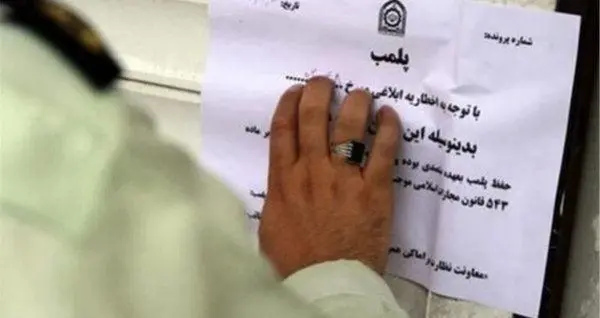 تاریخ:
شماره پرونده:
پلمب
با توجه به اخطاریه ابلاغی
بدینوسیله این
ماده
حفظ پلمب بعهده متصدی بوده و
۵۴۳ قانون مجازات اسلامی
«معاونت نظارت بر اماکن